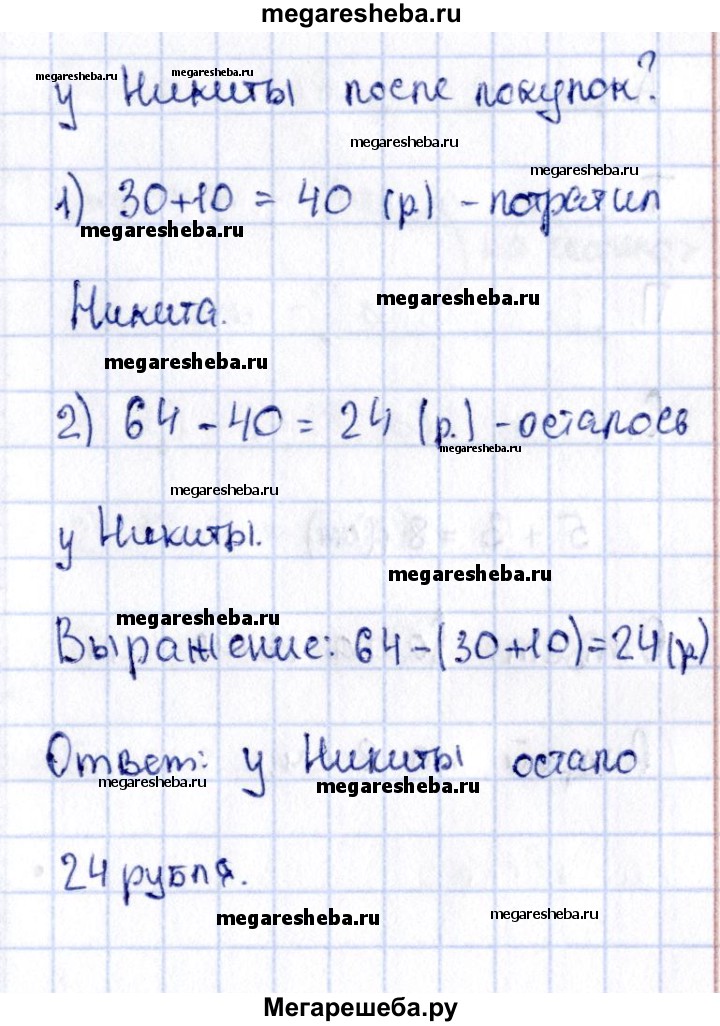 megaresheba.ru
megaresheba.ru megaresheba.ru
у Никиты после покупок?
megaresheba.ru
megaresheba.ru
1) 30+10 = 40 (р.) - потратил
megaresheba.ru
Никита.
megaresheba.ru
megaresheba.ru
2) 64 - 40 = 24 (р.) - осталось
megaresheba.ru
megaresheba.ru
у Никиты.
megaresheba.ru
megaresheba.ru
Выражение: 64-(30+10)=24(р.)
Ответ: у Никиты остало
megaresheba.ru
megaresheba.ru
24 рубля.
megaresheba.ru megaresheba.ru
Мегарешеба.ру